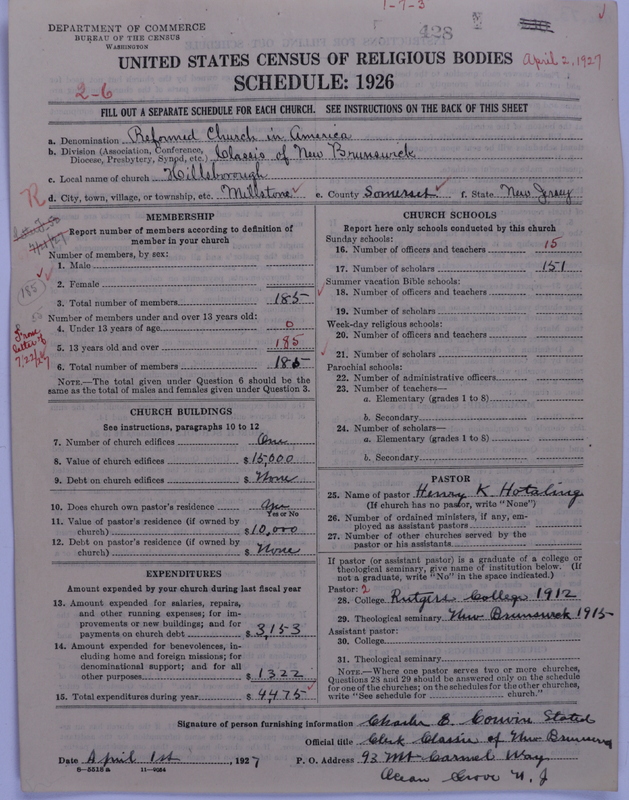 1-7-3
DEPARTMENT OF COMMERCE
BUREAU OF THE CENSUS
WASHINGTON
428
UNITED STATES CENSUS OF RELIGIOUS BODIES
April 2, 1927
SCHEDULE: 1926
2-6
FILL OUT A SEPARATE SCHEDULE FOR EACH CHURCH. SEE INSTRUCTIONS ON THE BACK OF THIS SHEET
a. Denomination Reformed Church in America
b. Division (Association, Conference, Diocese, Presbytery, Synod, etc.) Classis of New Brunswick
c. Local name of church Hillsborough
d. City, town, village, or township, etc. Millstone e. County Somerset f. State New Jersey
R
MEMBERSHIP
Report number of members according to definition of
member in your church
Number of members, by sex:
1. Male
2. Female
3. Total number of members 185
185
Number of members under and over 13 years old:
4. Under 13 years of age 0
5. 13 years old and over 185
6. Total number of members 185
From
letter of
7/22/27
NOTE.—The total given under Question 6 should be the
same as the total of males and females given under Question 3.
CHURCH BUILDINGS
See instructions, paragraphs 10 to 12
7. Number of church edifices One
8. Value of church edifices $15,000
9. Debt on church edifices $ None
10. Does church own pastor's residence Yes
Yes or No
11. Value of pastor's residence (if owned by
church) $10,000
12. Debt on pastor's residence (if owned by
church) $ None
EXPENDITURES
Amount expended by your church during last fiscal year
13. Amount expended for salaries, repairs,
and other running expenses; for im-
provements or new buildings; and for
payments on church debt $3,153
14. Amount expended for benevolences, in-
cluding home and foreign missions; for
denominational support; and for all
other purposes $1322
15. Total expenditures during year $4475
CHURCH SCHOOLS
Report here only schools conducted by this church
Sunday schools:
16. Number of officers and teachers 15
17. Number of scholars 151
Summer vacation Bible schools:
18. Number of officers and teachers
19. Number of scholars
Week-day religious schools:
20. Number of officers and teachers
21. Number of scholars
Parochial schools:
22. Number of administrative officers
23. Number of teachers—
a. Elementary (grades 1 to 8)
b. Secondary
24. Number of scholars—
a. Elementary (grades 1 to 8)
b. Secondary
PASTOR
25. Name of pastor Henry K. Hotaling
(If church has no pastor, write "None")
26. Number of ordained ministers, if any, em-
ployed as assistant pastors
27. Number of other churches served by the
pastor or his assistants
If pastor (or assistant pastor) is a graduate of a college or
theological seminary, give name of institution below. (If
not a graduate, write "No" in the space indicated.)
Pastor: 2
28. College Rutgers College 1912
29. Theological seminary New Brunswick 1915
Assistant pastor:
30. College
31. Theological seminary
NOTE.—Where one pastor serves two or more churches,
Questions 28 and 29 should be answered only on the schedule
for one of the churches; on the schedules for the other churches,
write "See schedule for church."
Signature of person furnishing information Charles E. Corwin Stated
Official title Clerk Classis of New Brunswick
Date April 1st, 1927 P. O. Address 93 Mt Carmel Way
8-5518a 11-9084
Ocean Grove N. J